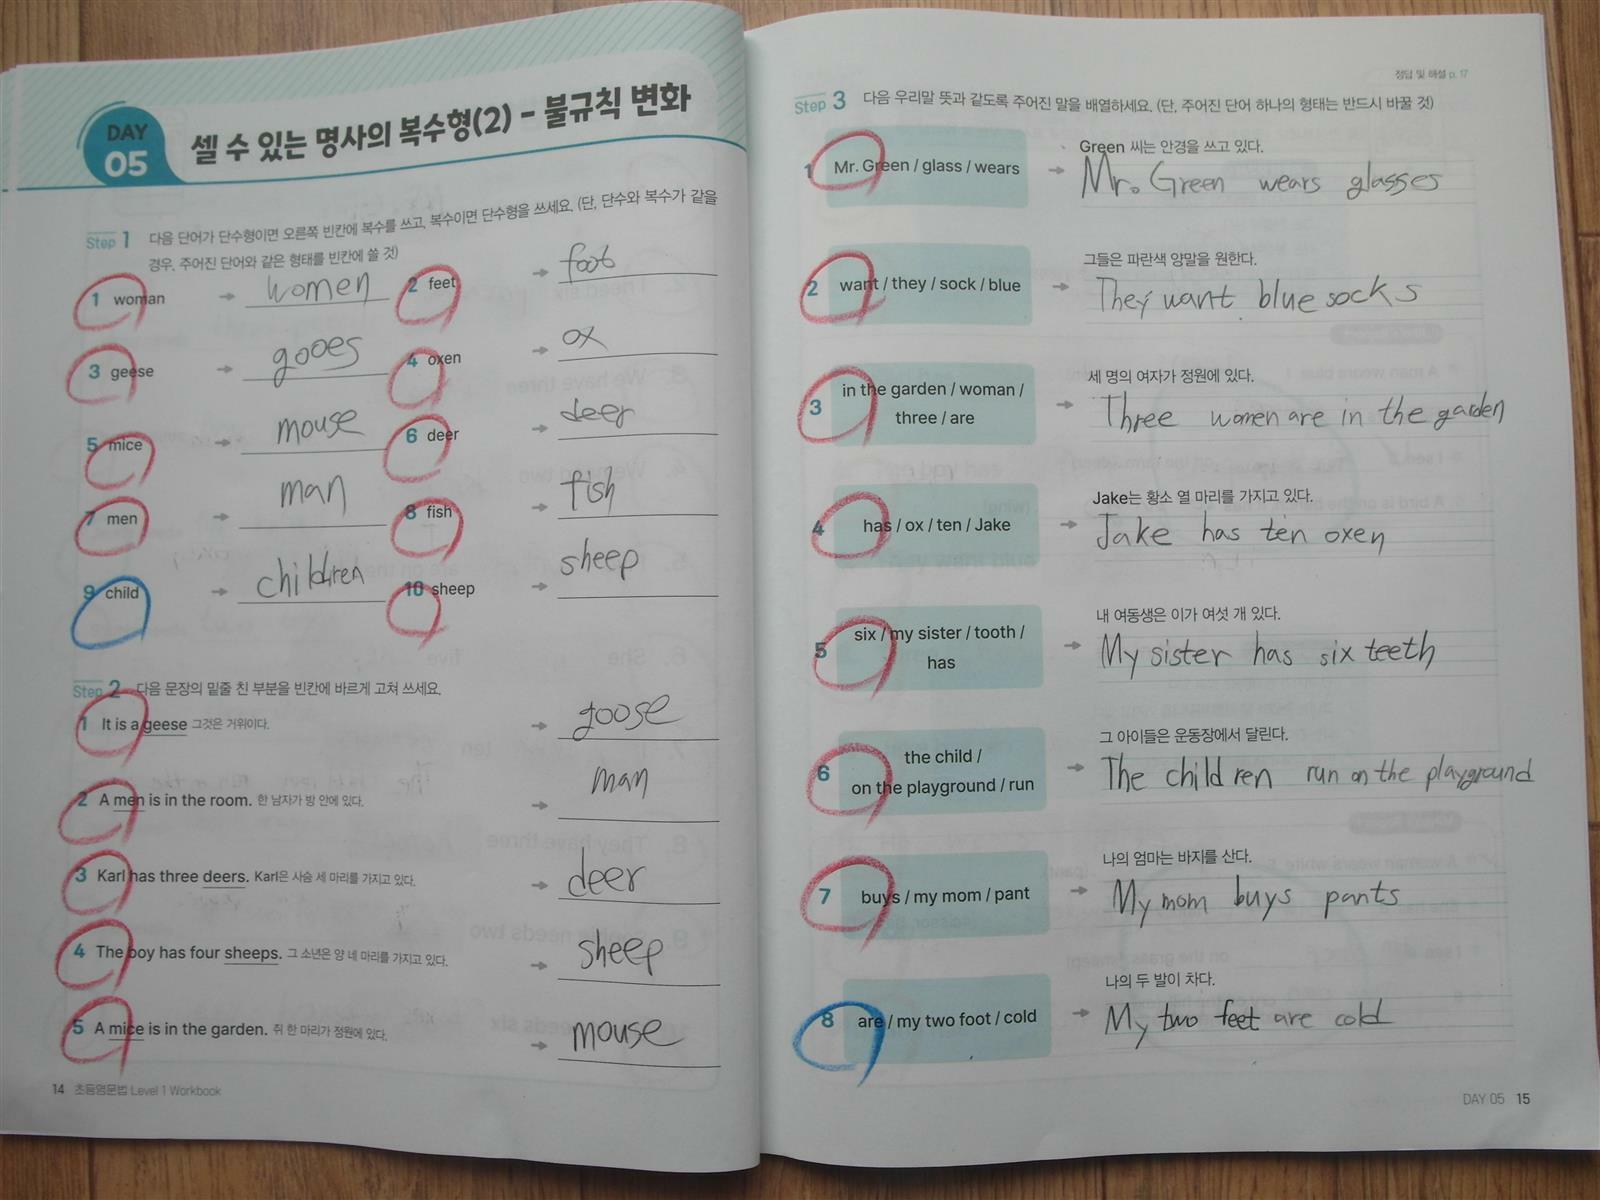 DAY
05
셀 수 있는 명사의 복수형(2) - 불규칙 변화
Step 1 다음 단어가 단수형이면 오른쪽 빈칸에 복수를 쓰고, 복수이면 단수형을 쓰세요. (단, 단수와 복수가 같을
경우, 주어진 단어와 같은 형태를 빈칸에 쓸 것)
1 woman → women
2 feet → foot
3 geese → gooes
4 oxen → ox
5 mice → mouse
6 deer → deer
7 men → man
8 fish → fish
9 child → children
10 sheep → sheep
Step 2 다음 문장의 밑줄 친 부분을 빈칸에 바르게 고쳐 쓰세요.
1 It is a geese 그것은 거위이다. → goose
2 A men is in the room. 한 남자가 방 안에 있다. → man
3 Karl has three deers. Karl은 사슴 세 마리를 가지고 있다. → deer
4 The boy has four sheeps. 그 소년은 양 네 마리를 가지고 있다. → sheep
5 A mice is in the garden. 쥐 한 마리가 정원에 있다. → mouse
14 초등영문법 Level 1 Workbook
정답 및 해설 p. 17
Step 3 다음 우리말 뜻과 같도록 주어진 말을 배열하세요. (단, 주어진 단어 하나의 형태는 반드시 바꿀 것)
Green 씨는 안경을 쓰고 있다.
1 Mr. Green / glass / wears → Mr. Green wears glasses
그들은 파란색 양말을 원한다.
2 want / they / sock / blue → They want blue socks
세 명의 여자가 정원에 있다.
3 in the garden / woman /
three / are → Three women are in the garden
Jake는 황소 열 마리를 가지고 있다.
4 has / ox / ten / Jake → Jake has ten oxen
내 여동생은 이가 여섯 개 있다.
5 six / my sister / tooth /
has → My sister has six teeth
그 아이들은 운동장에서 달린다.
6 the child /
on the playground / run → The children run on the playground
나의 엄마는 바지를 산다.
7 buys / my mom / pant → My mom buys pants
나의 두 발이 차다.
8 are / my two foot / cold → My two feet are cold
DAY 05 15